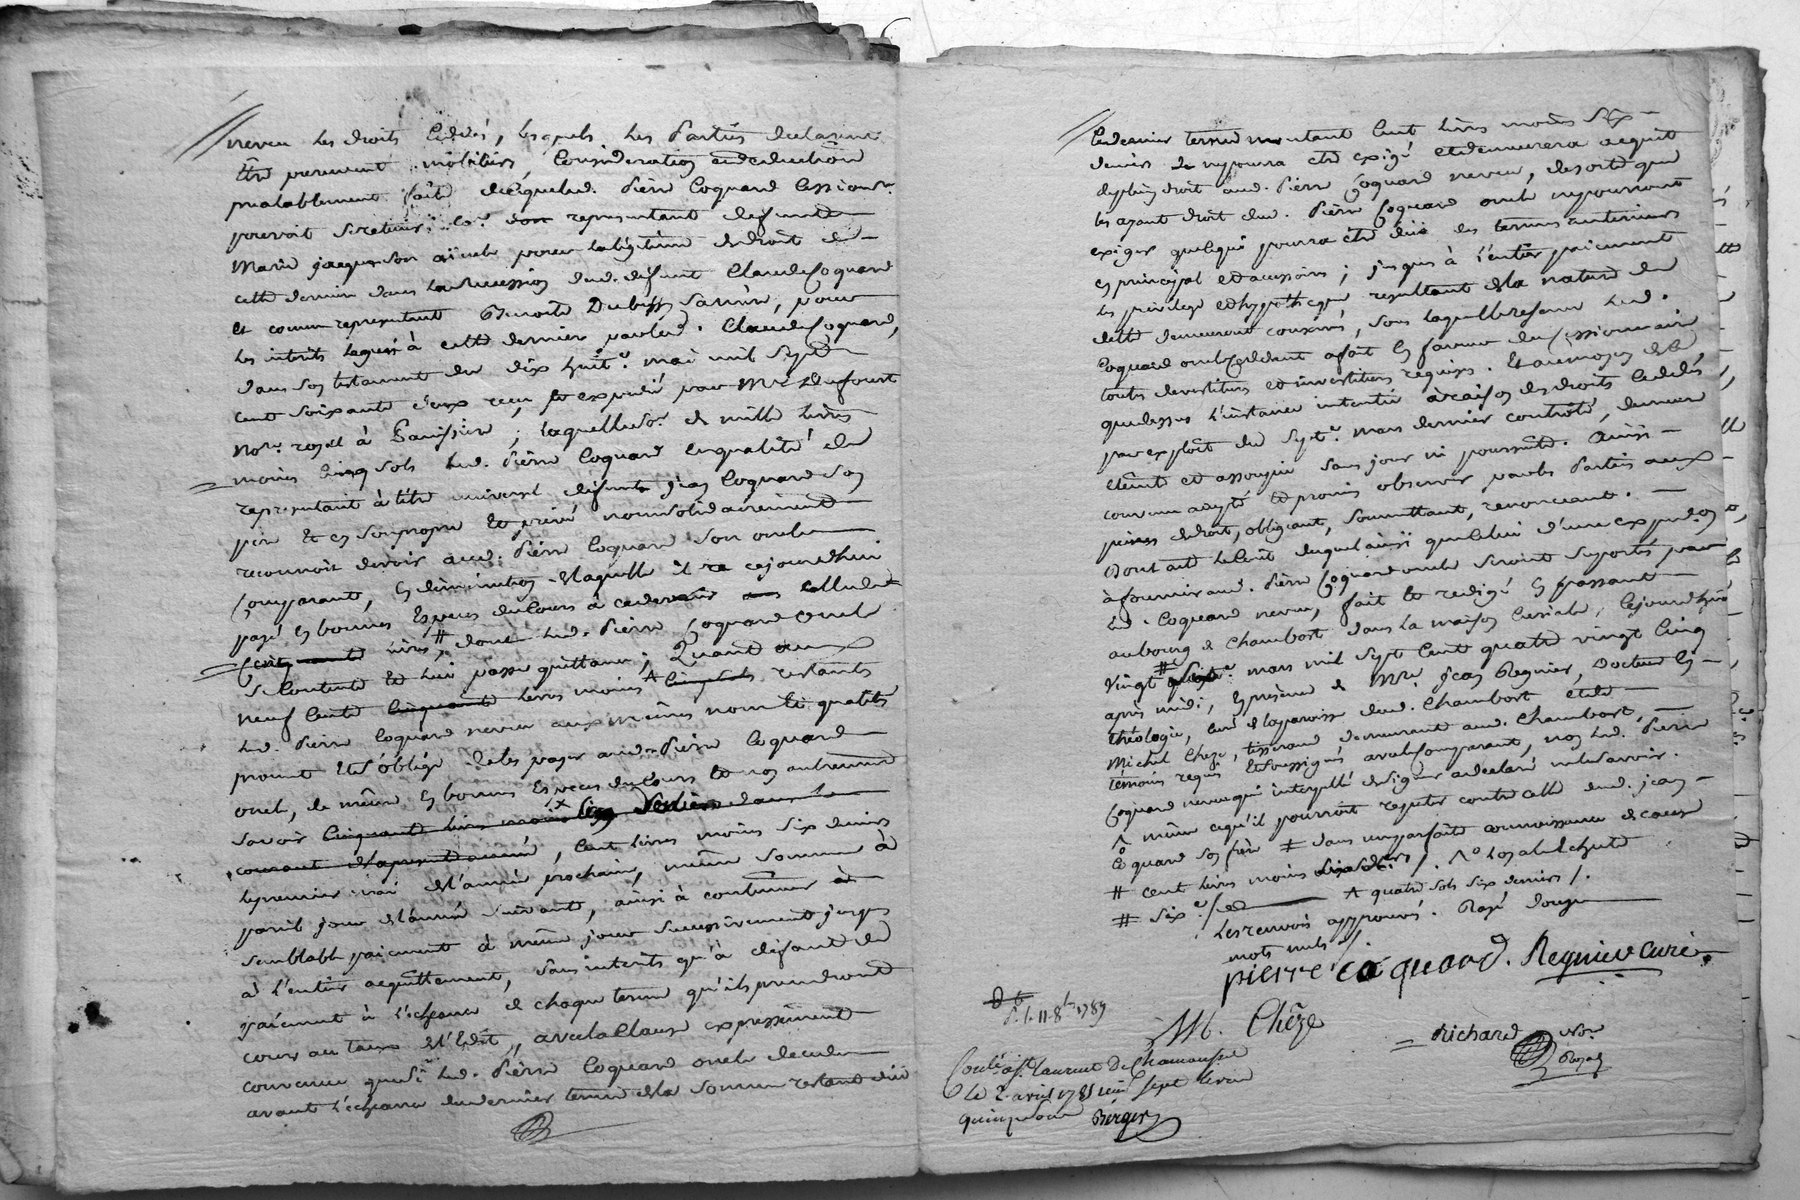 neveu les droits cédés, lesquels les Parties declarent
être purement mobiliers, Consideration et deduction
préalablement faite de ce que led. Pierre Coquard Cessionre
pouvoit se retenir co. representant defunte
Marie jacquenson aïeule pour la légitime de droit de
cette derniere dans la succession dud. defunt Claude Coquard
et comme representant Benoite Dubessy sa mère, pour
les interêts legués à cette derniere par led. Claude Coquard,
dans son testament du dix huit e. mai mil Sept
cent soixante deux recu et expedié par Mre Dufourt
Nore royal à Panissiere ; laquelle so. de mille livres
moins cinq sols led. Pierre Coquard en qualité de
representant à titre universel défunt jean Coquard son
père et en son propre et privé nom solidairement
reconnoit devoir aud. Pierre Coquard son oncle
Comparant, en diminution de laquelle il a cejourdhui
payé en bonnes Especes du Cours à ce dernier celle de
Cinquante livres # dont led. Pierre Coquard oncle
se Contente et lui passe quittance ; Quant aux
neuf Cents Cinquante livres moins Λ Cinq sols restants
led. Pierre Coquard neveu aux mêmes nom et qualités
promet et s'oblige de les payer aud. Pierre Coquard
oncle, de même en bonnes Especes du Cours et non autrement
Savoir Cinquante livres moins Cinq deniers dans le
courant de la presente année, Cent livres moins six deniers
le premier mai de l'année prochaine, même somme à
pareil jour de l'année suivante, ainsi à continuer
semblable paiement à même jour Successivement jusques
à l'entier acquittement, Sans interêts qu'à défaut de
paiement à l'échéance de chaque terme qu'ils prendront
cours au taux de l'Edit, avec la Clause expressement
convenue que si led. Pierre Coquard oncle décède
avant l'échéance du dernier terme de la Somme restant düe
Ce dernier terme montant Cent livres moins six
deniers ne pourra être exigé et demeurera acquit
de plein droit aud. Pierre Coquard neveu, de sorte que
les ayant droit dud. Pierre Coquard oncle ne pourront
exiger que ce qui pourra être dûe des termes anterieurs
en principal et accessoires ; jusques à l'entier paiement
les privilege et hypotheque resultant de la nature de
dette demeurent conservés, Sous laquelle reserve led.
Coquard oncle cedant a fait en faveur du Cessionnaire
toutes devestitures et investitures requises. Et au moyen de ce
que dessus L'instance intentée à raison des droits Cedés
par exploit du Septe. mars dernier controlé, demeure
eteinte et assoupie sans jour ni poursuite. Ainsi
convenu accepté et promis observer par les Parties aux
peines de droit, obligeant, Soumettant, renonceant.
Dont acte le Coût duquel ainsi que Celui d'une expedon
à fournir aud. Pierre Coquard oncle Seront suportés par
led. Coquard neveu, fait et redigé en passant
au bourg de Chambost dans la maison Curiale ; cejourdhui
Vingt # mars mil Sept Cent quatre vingt Cinq
après midi, En présence de Mre. jean Regnier, Docteur en
theologie, Curé de la paroisse dud. Chambost et de
Michel Cheze, tisserand demeurant aud. Chambost,
témoins requis et soussignés avec le Comparant, non led. Pierre
Coquard neveu qui interpellé de signer a declaré ne le savoir.
Λ même ce qu'il pourroit repeter contre celle dud. jean
Coquard son frère # dans une parfaite connoissance de cause
# cent livres moins six sols /.
# six e. / Λ quatre sols six deniers /.
Les renvois approuvés. Rayé douze
mots nuls /.
pierre coquard. Regnier curé.
M. Chéze
Richard Nore
Royal
Conlé à St Laurent De Chamousset
Le 2. avril 1785 reçu sept livres
quinze sous Berger